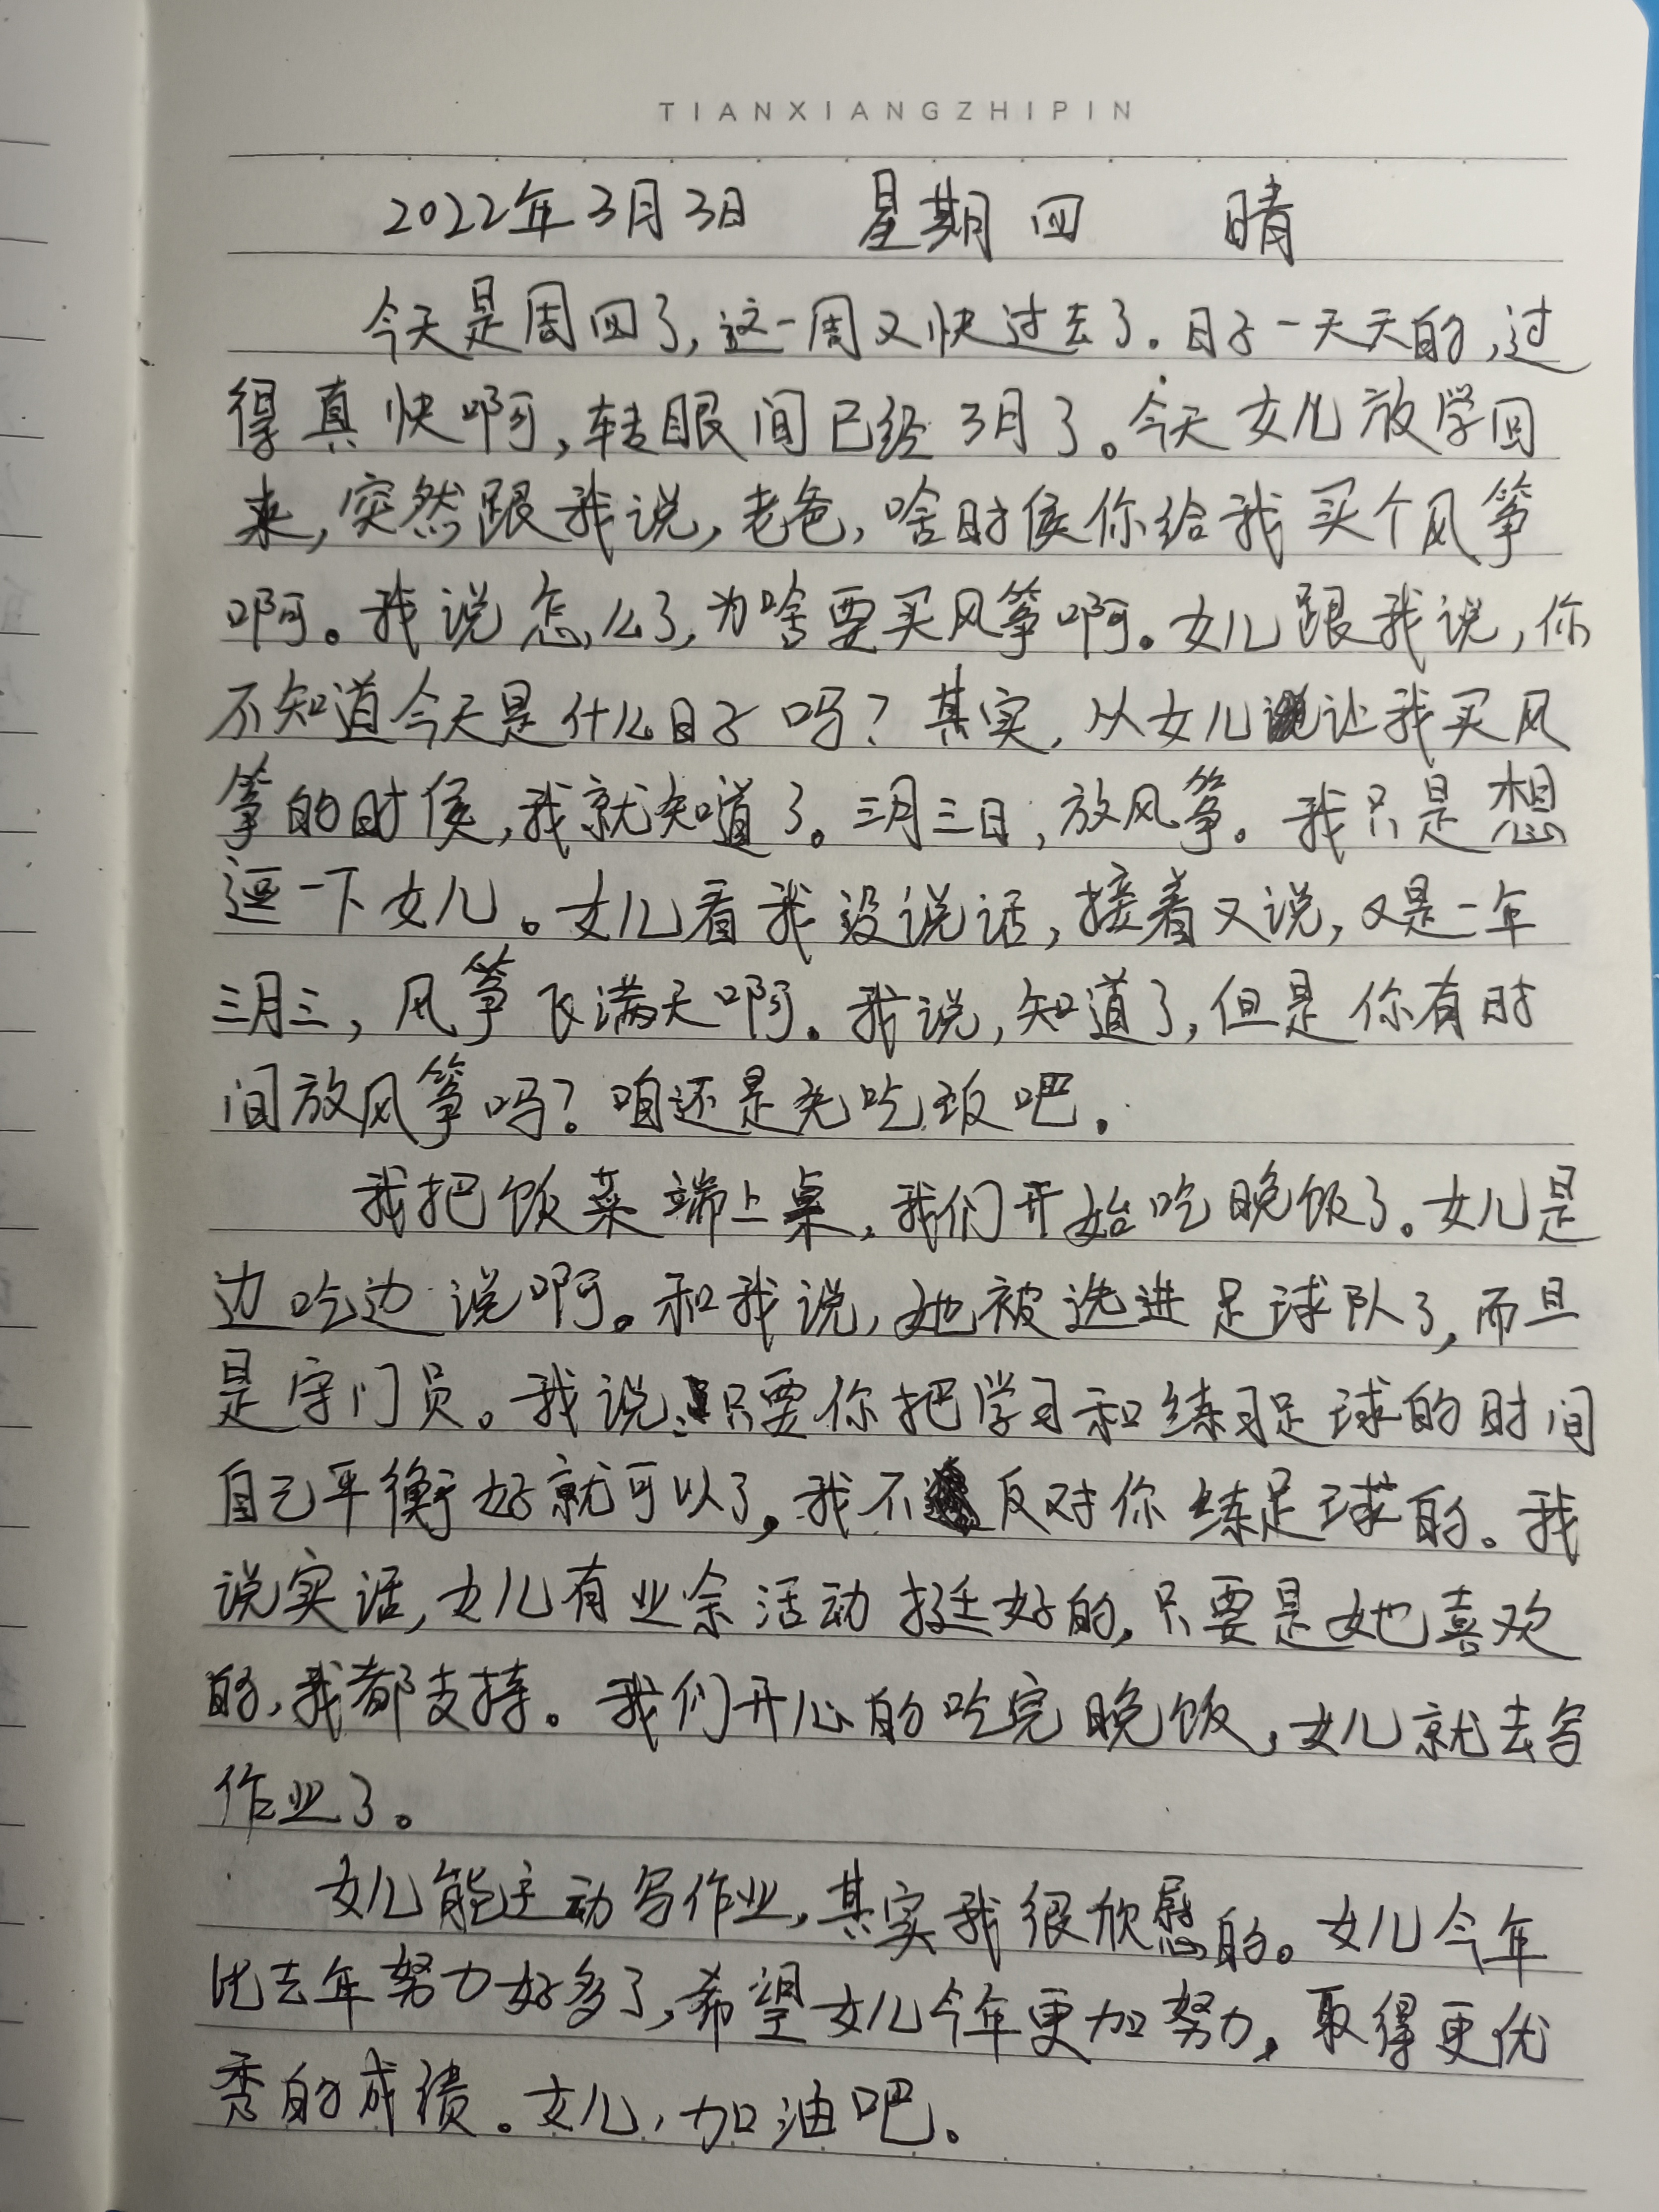 TIANXIANGZHIPIN
2022年3月3日 星期四 晴
今天是周四了,这一周又快过去了.日子一天天的,过
得真快啊,转眼间已经3月了。今天女儿放学回
来,突然跟我说,老爸,啥时候你给我买个风筝
啊。我说怎么了,为啥要买风筝啊。女儿跟我说,你
不知道今天是什么日子吗?其实,从女儿让我买风
筝的时候,我就知道了。三月三日,放风筝。我只是想
逗一下女儿。女儿看我没说话,接着又说,又是一年
三月三,风筝飞满天啊。我说,知道了,但是你有时
间放风筝吗?咱还是先吃饭吧.
我把饭菜端上桌,我们开始吃晚饭了。女儿是
边吃边说啊。和我说,她被选进足球队了,而且
是守门员。我说,只要你把学习和练习足球的时间
自己平衡好就可以了,我不反对你练足球的。我
说实话,女儿有业余活动挺好的,只要是她喜欢
的,我都支持。我们开心的吃完晚饭,女儿就去写
作业了。
女儿能主动写作业,其实我很欣慰的。女儿今年
比去年努力好多了,希望女儿今年更加努力,取得更优
秀的成绩。女儿,加油吧。